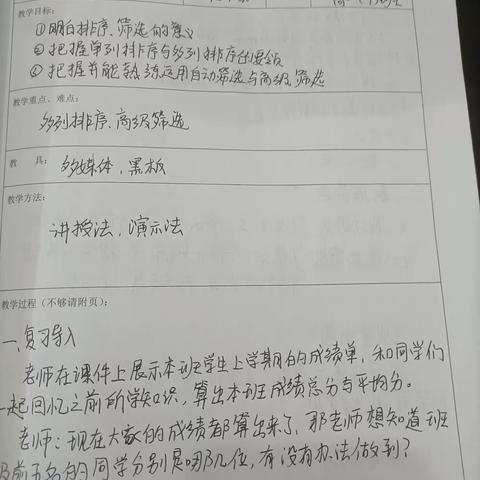 教学目标:
①明白排序、筛选的意义
②把握单列排序与多列排序的要领
②把握并能熟练运用自动筛选与高级筛选
教学重点、难点:
多列排序、高级筛选
教 具: 多媒体、黑板
教学方法:
讲授法、演示法
教学过程(不够请附页):
一、复习导入
老师在课件上展示本班学生上学期的成绩单,和同学们
一起回忆之前所学知识,算出本班成绩总分与平均分。
老师:现在大家的成绩都算出来了,那老师想知道班
级前五名的同学分别是哪几位,有没有办法做到?